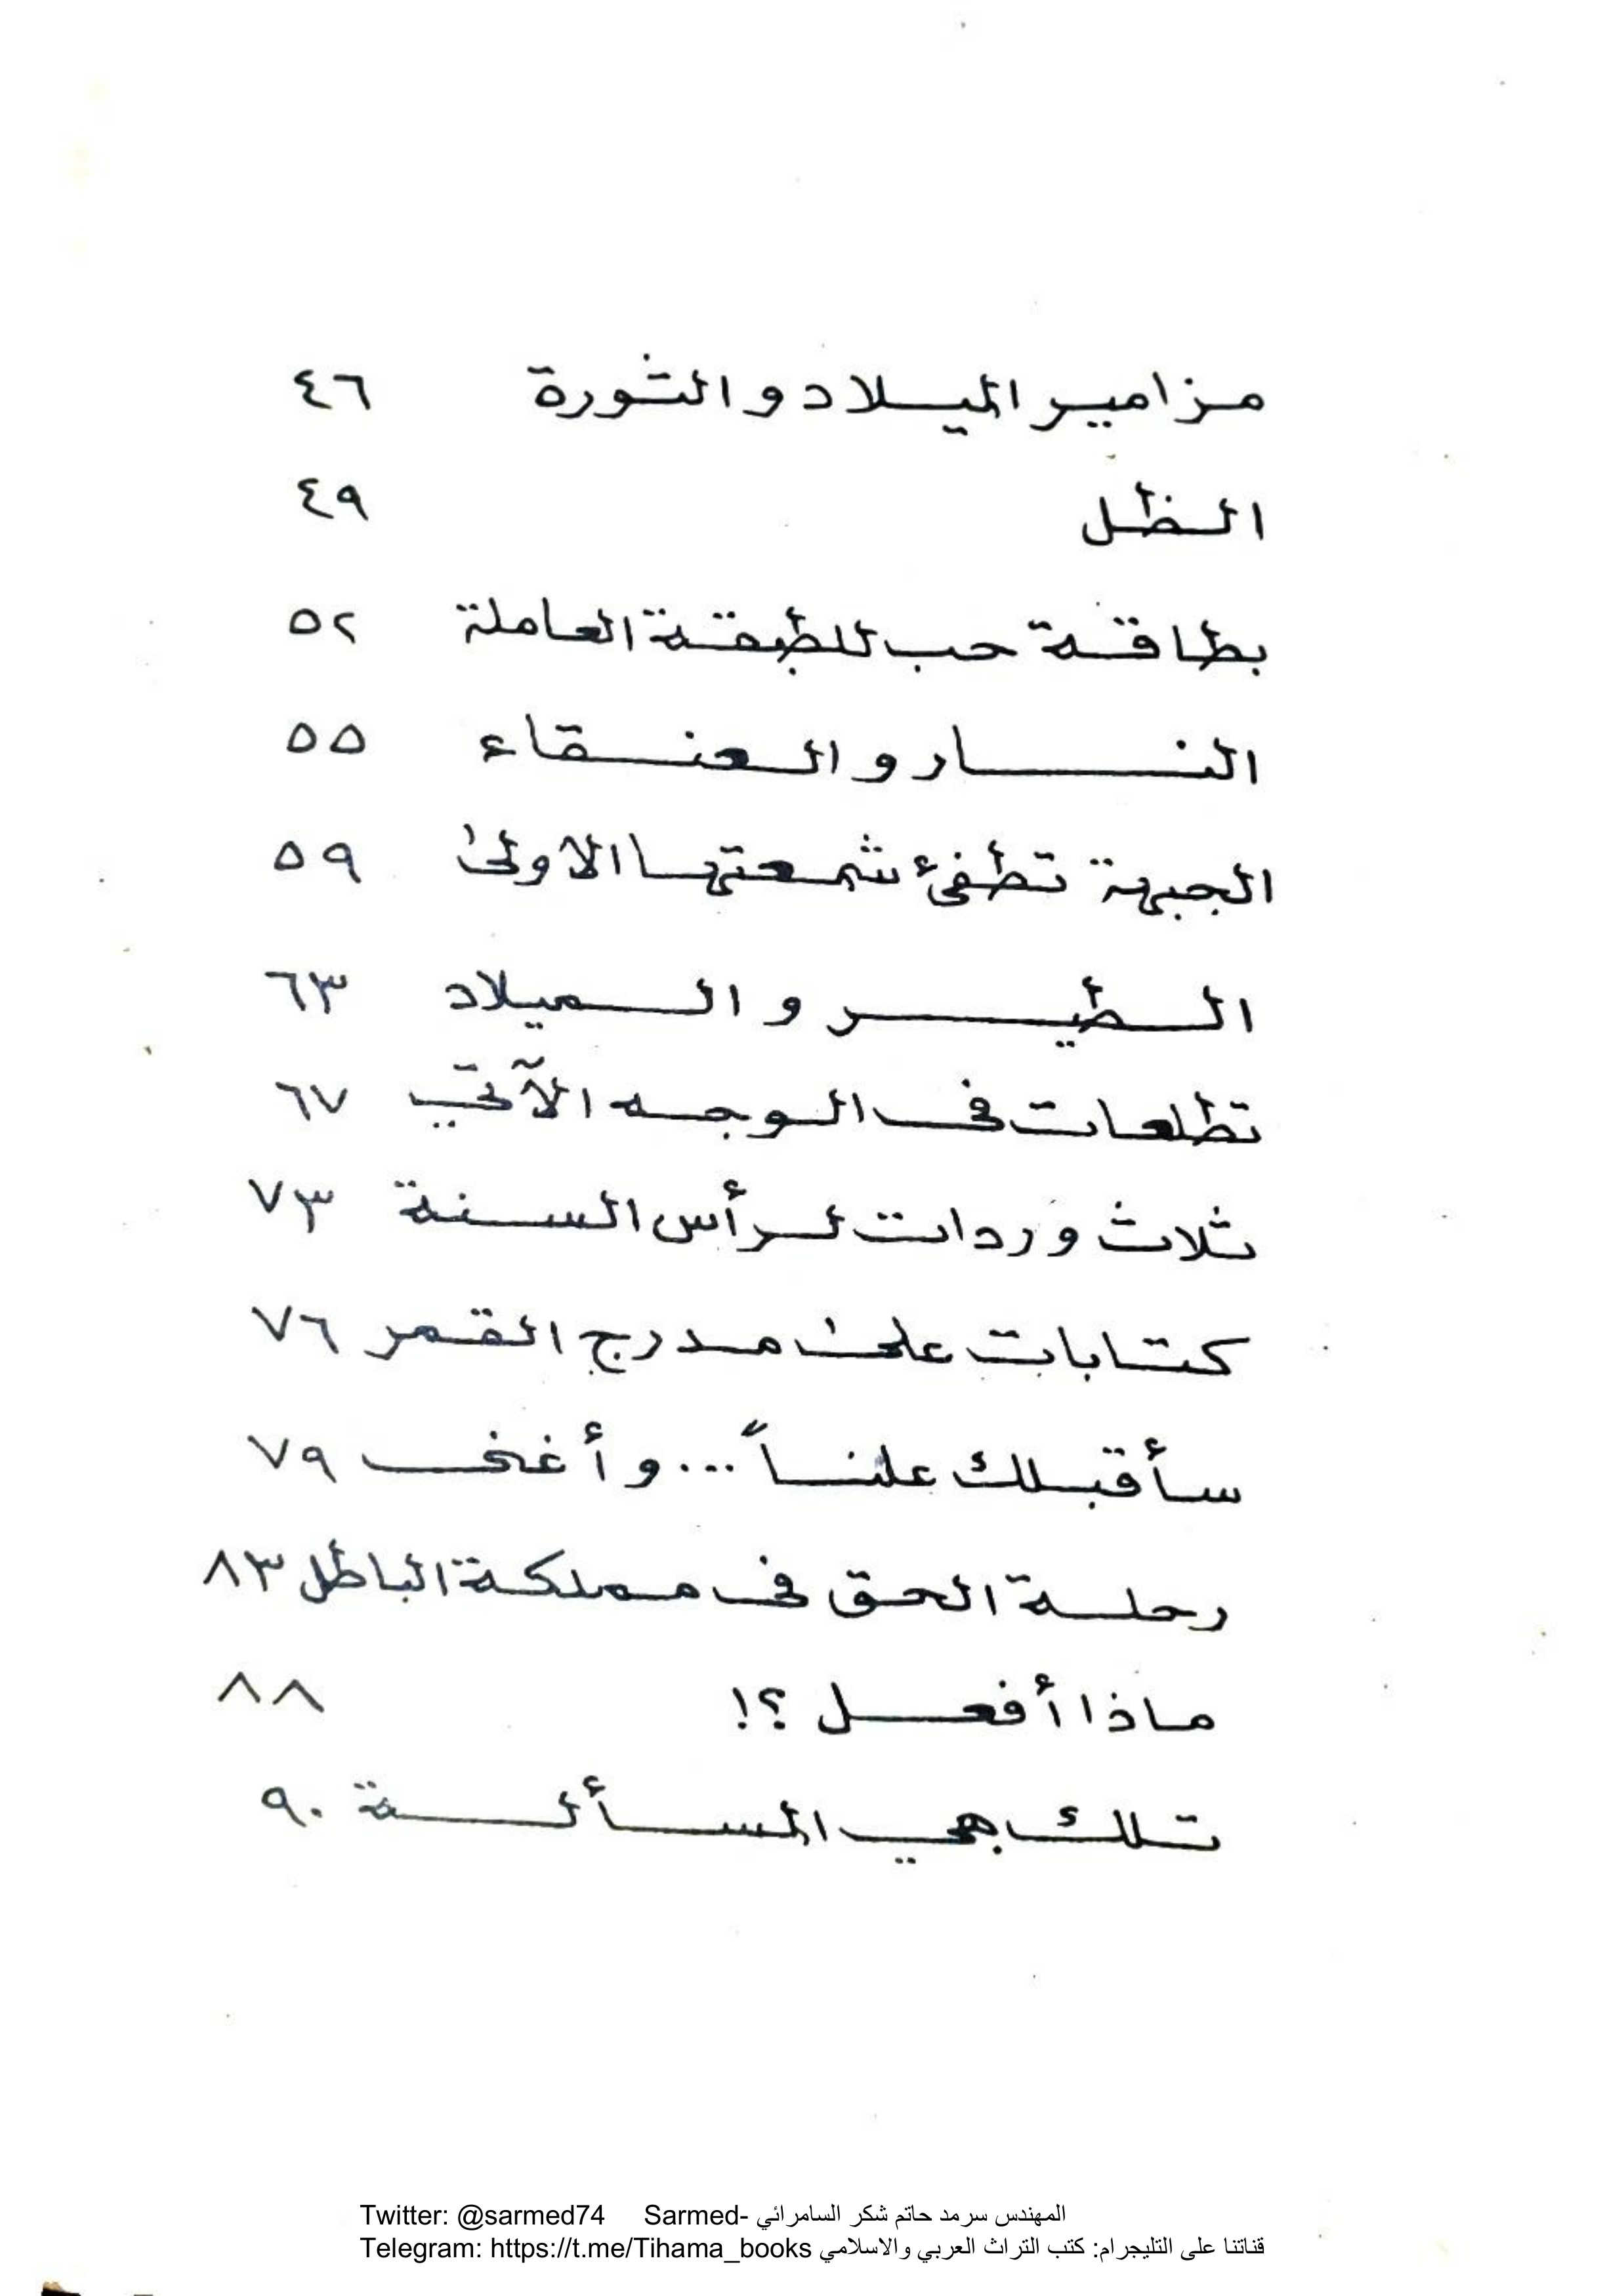 مزامير الميلاد والثورة ٤٦
الظل ٤٩
بطاقة حب للطبقة العاملة ٥٢
النار والعنقاء ٥٥
الجبهة تطفئ شمعتها الاولى ٥٩
الطير والميلاد ٦٣
تطلعات في الوجه الآتي ٦٧
ثلاث وردات لرأس السنة ٧٣
كتابات على مدرج القمر ٧٦
سأقبلك علناً ... وأغني ٧٩
رحلة الحق في مملكة الباطل ٨٣
ماذا أفعل ؟! ٨٨
تلك هي المسألة ٩٠
Twitter: @sarmed74 Sarmed- المهندس سرمد حاتم شكر السامرائي
Telegram: https://t.me/Tihama_books قناتنا على التليجرام: كتب التراث العربي والاسلامي